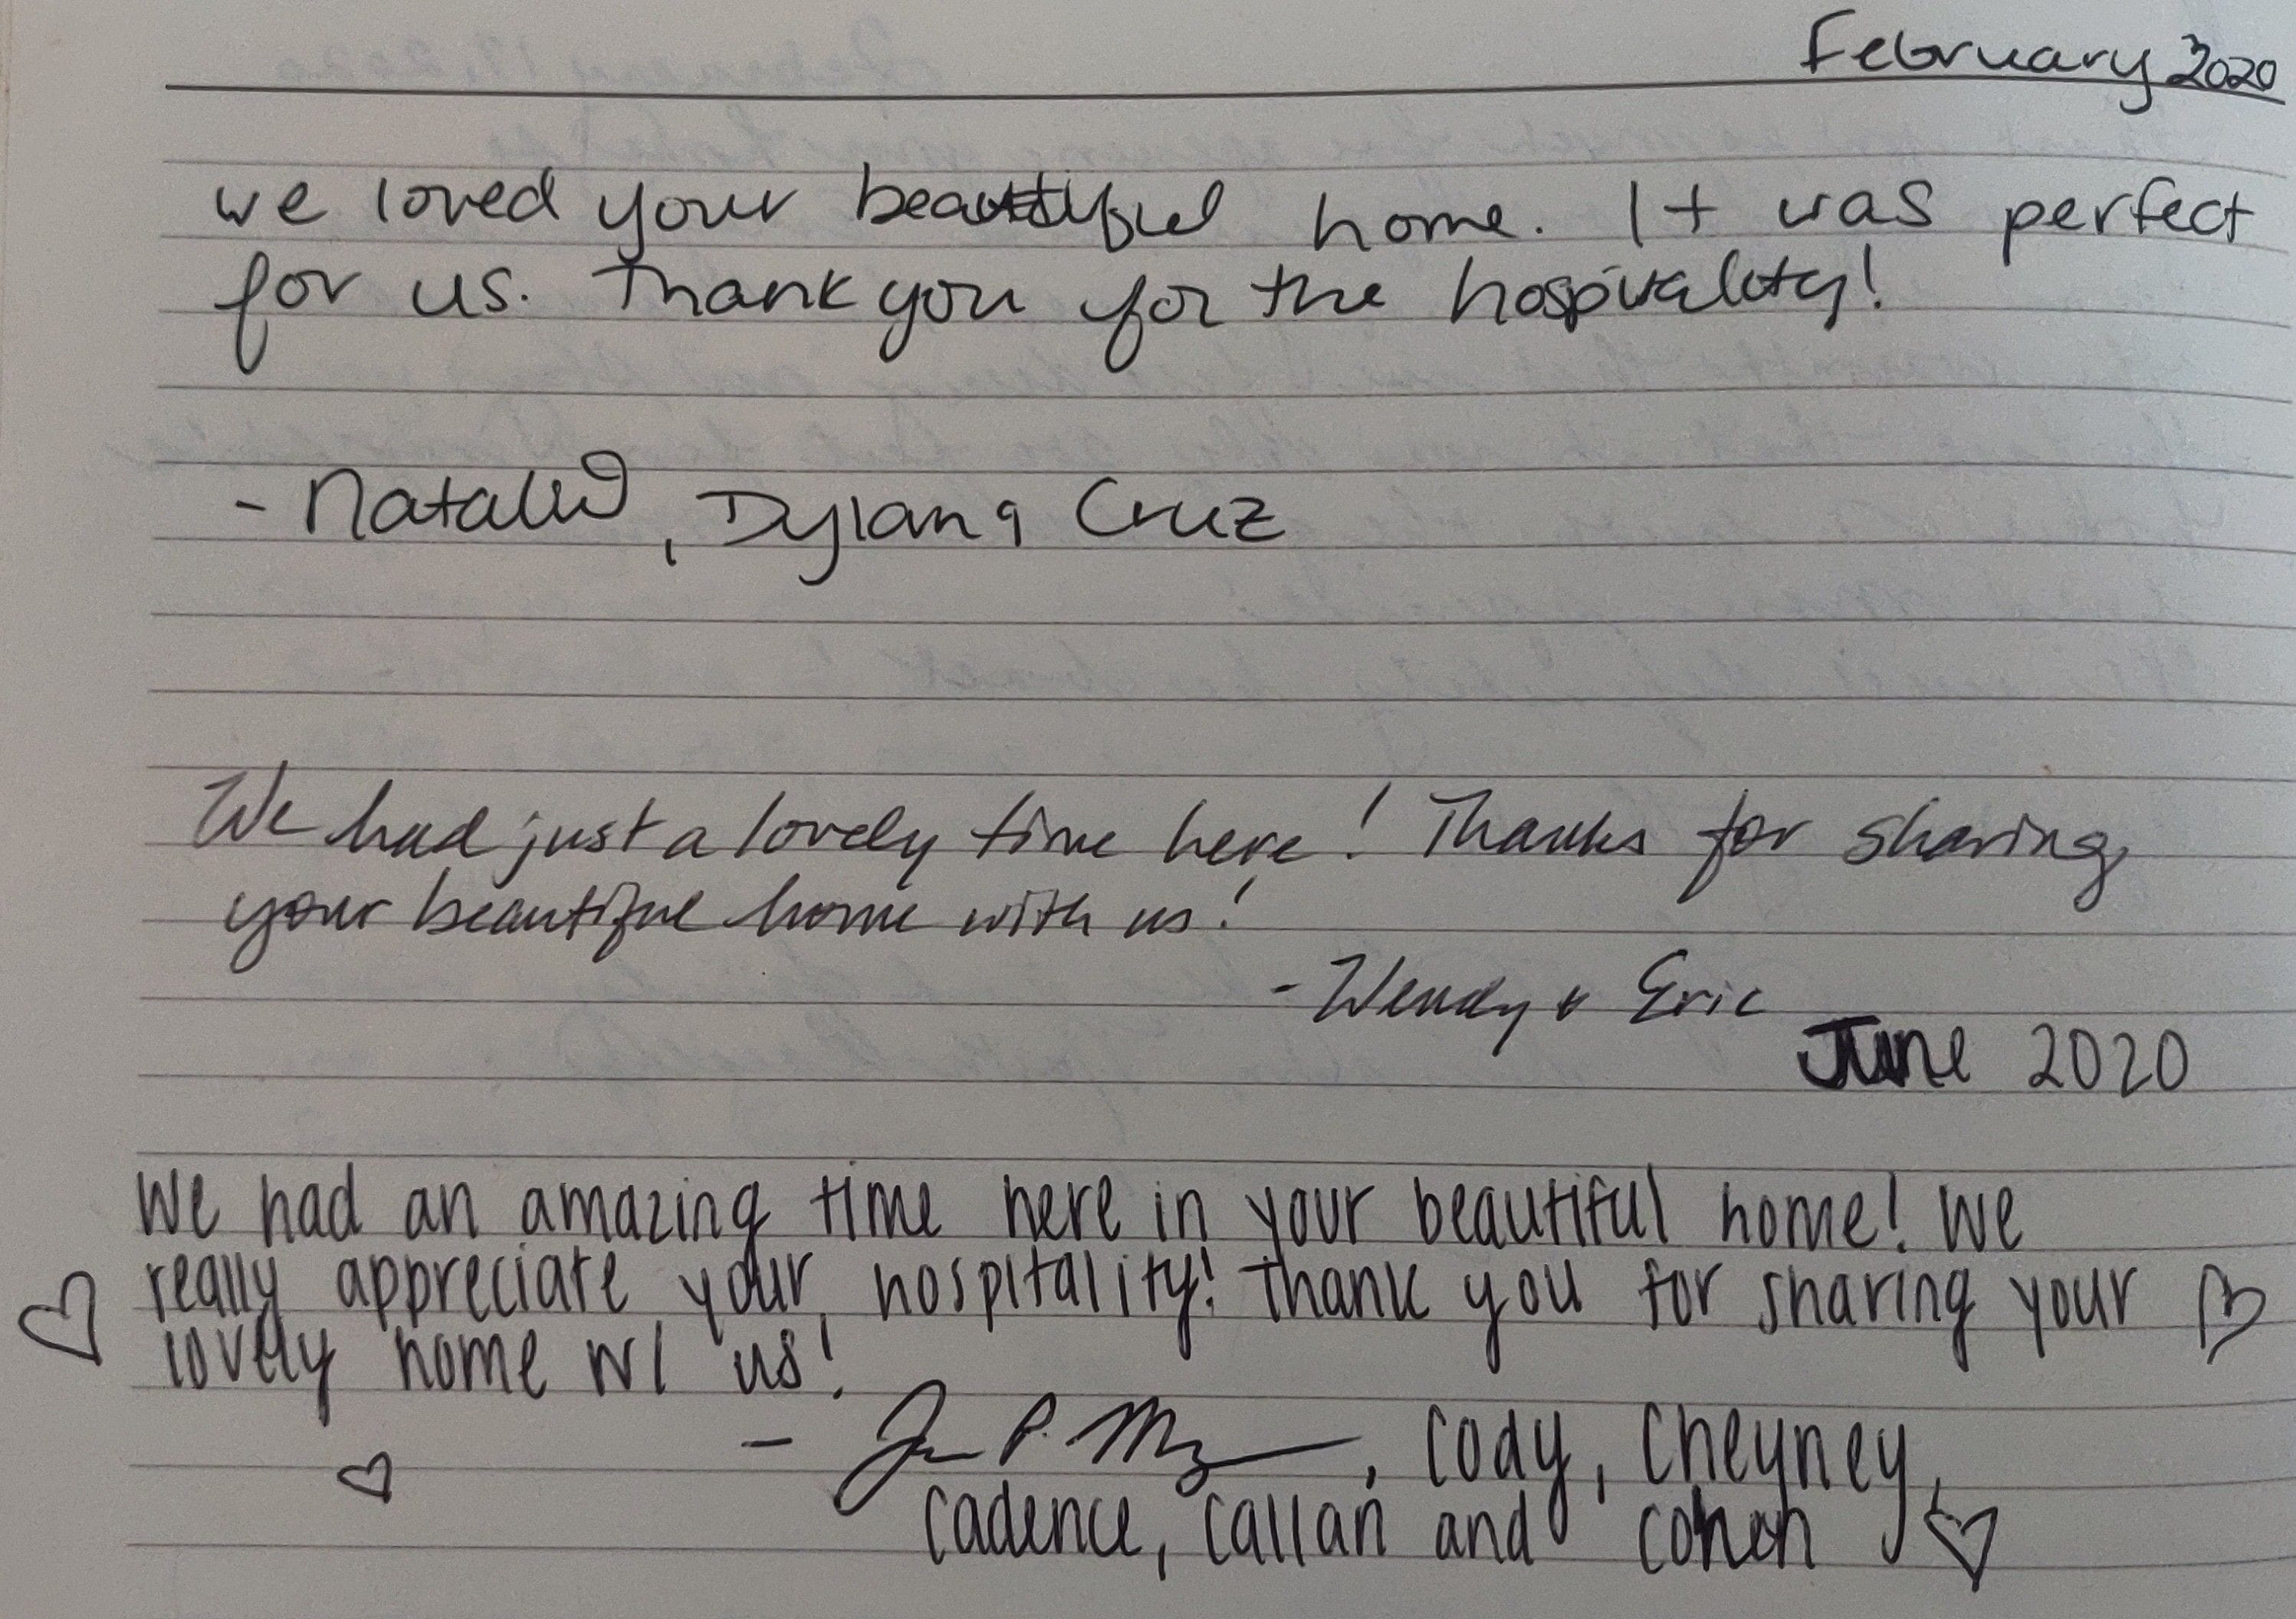 February 2020
we loved your beautiful home. It was perfect
for us. Thank you for the hospitality!
- Natalie, Dylan & Cruz
We had just a lovely time here! Thanks for sharing
your beautiful home with us!
- Wendy & Eric
June 2020
We had an amazing time here in your beautiful home! We
really appreciate your hospitality! Thank you for sharing your
lovely home w/ us!
- P. , Cody, Cheyney,
Cadence, Callan and Cohen